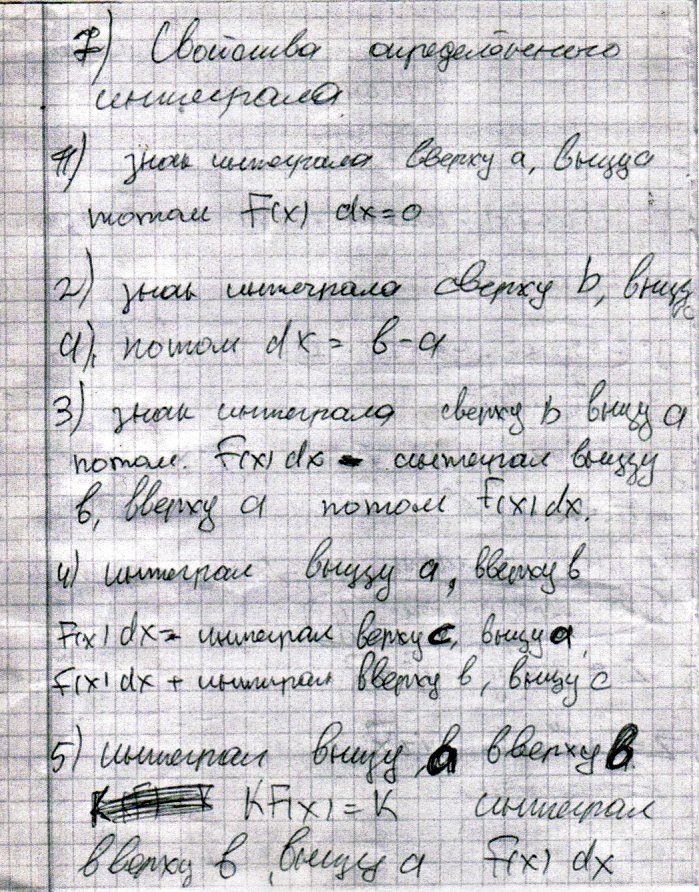 7) Свойства определённого
интеграла
1) знак интеграла вверху a, внизу a
потом F(x) dx=0
2) знак интеграла сверху b, внизу
a), потом dx = b-a
3) знак интеграла сверху b внизу a
потом. F(x) dx - интеграл внизу
b, вверху a потом F(x) dx.
4) интеграл внизу a, вверху b
F(x) dx = интеграл верху c, внизу a,
F(x) dx + интеграл вверху b, внизу c
5) интеграл внизу, a вверху b
KF(x) = K интеграл
вверху b, внизу a F(x) dx